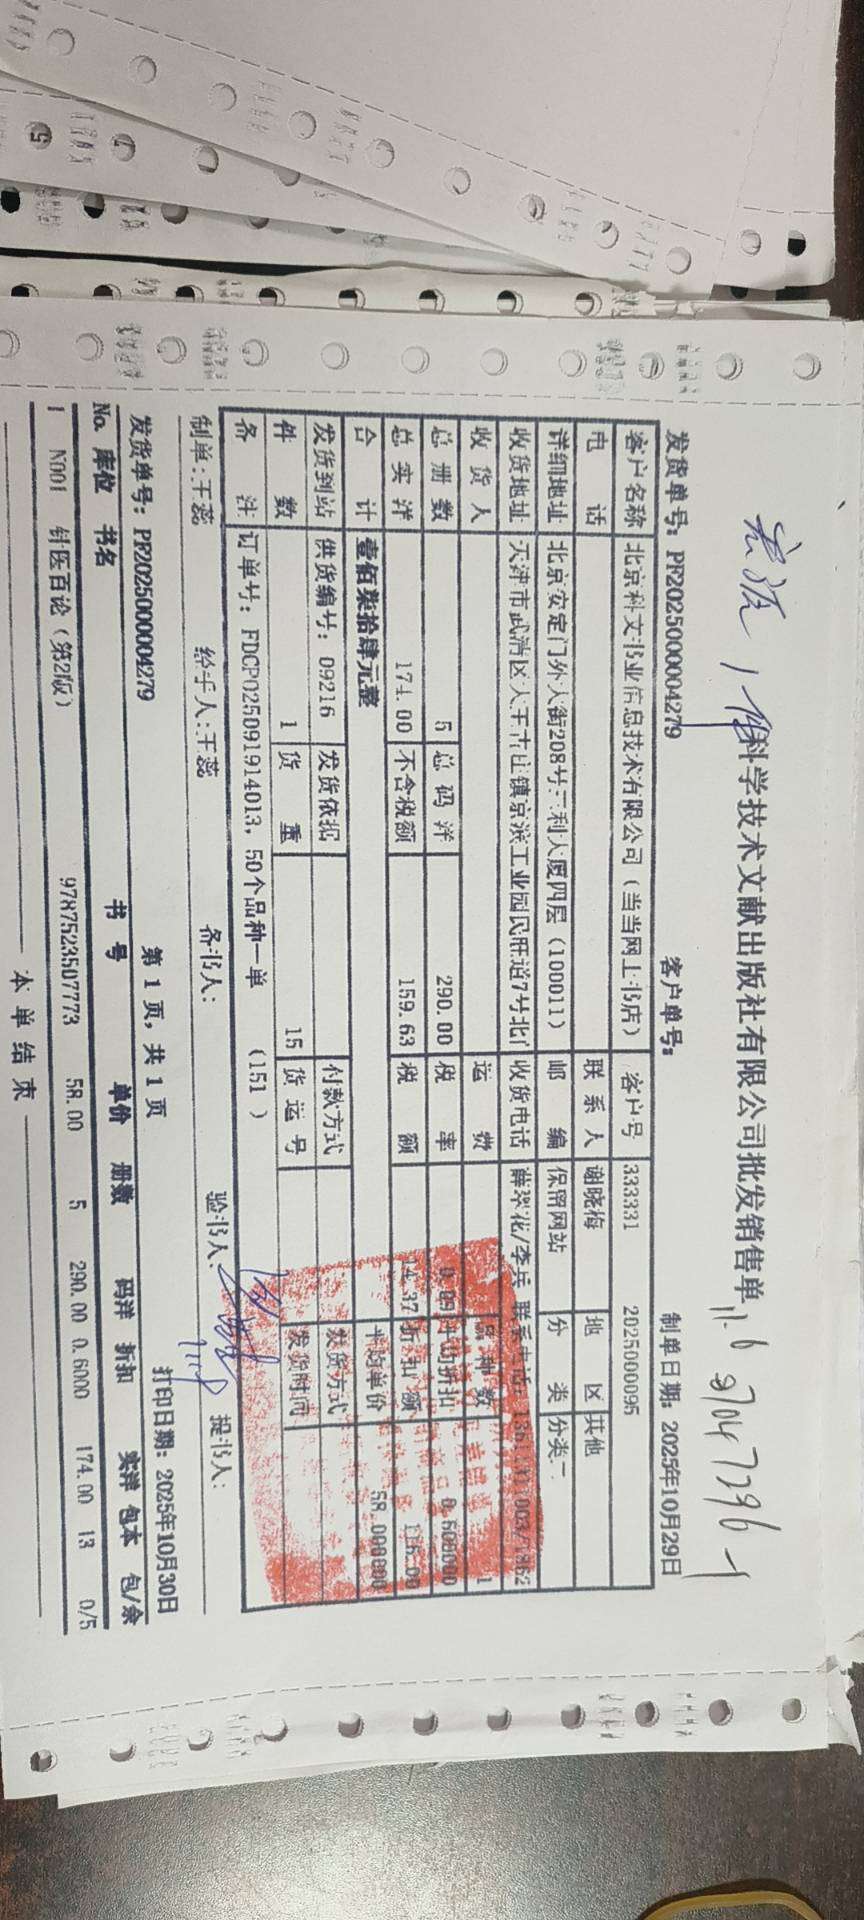 科学技术文献出版社有限公司批发销售单
发货单号: PF2025000004279 客户单号: 制单日期: 2025年10月29日
客户名称 北京科文书业信息技术有限公司(当当网上书店) 客户号 333331 2025000095
电 话 联系人 谢晓梅 地 区 其他
详细地址 北京安定门外大街208号三利大厦四层(100011) 邮 编 保留网站 分 类 分类二
收货地址 天津市武清区大王古庄镇京滨工业园民旺道7号北门 收货电话 薛翠花/李兵 联系电话:
收货人 运 费 品种数 1
总册数 5 总码洋 290.00 税 率 0.09 平均折扣 0.600000
总实洋 174.00 不含税额 159.63 税 额 14.37 折扣额 116.00
合 计 壹佰柒拾肆元整 平均单价 58.000000
发货到站 供货编号: 09216 发货依据 付款方式 发货方式
件 数 1 货 重 15 货运号 发货时间
备 注 订单号: FDCP025091914013, 50个品种一单 (151 )
制单:王蕊 经手人:王蕊 备书人: 验书人: 提书人:
第 1 页, 共 1 页 打印日期: 2025年10月30日
发货单号: PF2025000004279
No. 库位 书名 书 号 单价 册数 码洋 折扣 实洋 包本 包/余
1 N001 针医百论(第2版) 9787523507773 58.00 5 290.00 0.6000 174.00 13 0/5
本 单 结 束